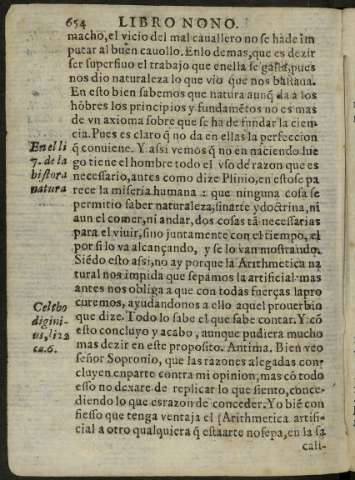 654 LIBRO NONO.
macho, el vicio del mal cauallero no se hade im
putar al buen cauollo. Enlo demas, que es dezir
ser superfluo el trabajo que enella se gasta, pues
nos dio naturaleza lo que vio que nos bastaua.
En esto bien sabemos que natura aunq̃ da à los
hõbres los principios y fundamẽtos no es mas
de vn axioma sobre que se ha de fundar la cien
cia. Pues es claro q̃ no da en ellas la perfeccion
q̃ conuiene. Y assi vemos q̃ no en naciendo lue
go tiene el hombre todo el vso de razon que es
necessario, antes como dize Plinio, en esto se pa
rece la miseria humana : que ninguna cosa se
permitio saber naturaleza, sin arte y doctrina, ni
aun el comer, ni andar, dos cosas tã necessarias
para el viuir, sino juntamente con el tiempo, el
por si lo va alcançando, y se lo van mostrando.
Siẽdo esto assi, no ay porque la Arithmetica na
tural nos impida que sepamos la artificial: mas
antes nos obliga a que con todas fuerças la pro
curemos, ayudandonos a ello aquel prouerbio
que dize. Todo lo sabe el que sabe contar. Y cõ
esto concluyo y acabo, aunque pudiera mucho
mas dezir en este proposito. Antima. Bien veo
señor Sopronio, que las razones alegadas con-
cluyen en parte contra mi opinion, mas cõ todo
esso no dexare de replicar lo que siento, conce-
diendo lo que es razon de conceder. Yo biẽ con
fiesso que tenga ventaja el Arithmetica artifi-
cial a otro qualquiera q̃ esta arte no sepa, en la fa
cili-
En el li
7. de la
histora
natura
Celtho
digini-
us, li 22
ca. 6.